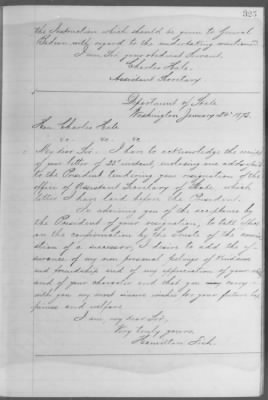 325
the Instruction which should be given to General
with regard to the undertaking mentioned.
I am Sir, your obedient Servant.
Charles Hale.
Assistant Secretary.
Department of State
Washington January 24th 1873.
Hon. Charles Hale
My dear Sir. I have to acknowledge the receipt
of your letter of 23d instant, inclosing one addressed
to the President tendering your resignation of the
office of Assistant Secretary of State, which
letter I have laid before the President.
In advising you of the acceptance by
the President of your resignation, to take effect
on the confirmation by the Senate of the
of a successor, I desire to add the
of my own personal feelings of kindness
and friendship and of my appreciation of your
and of your character and that you carry
with you my most sincere wishes for your future
and welfare
I am, my dear Sir,
Very truly yours,
Hamilton Fish.